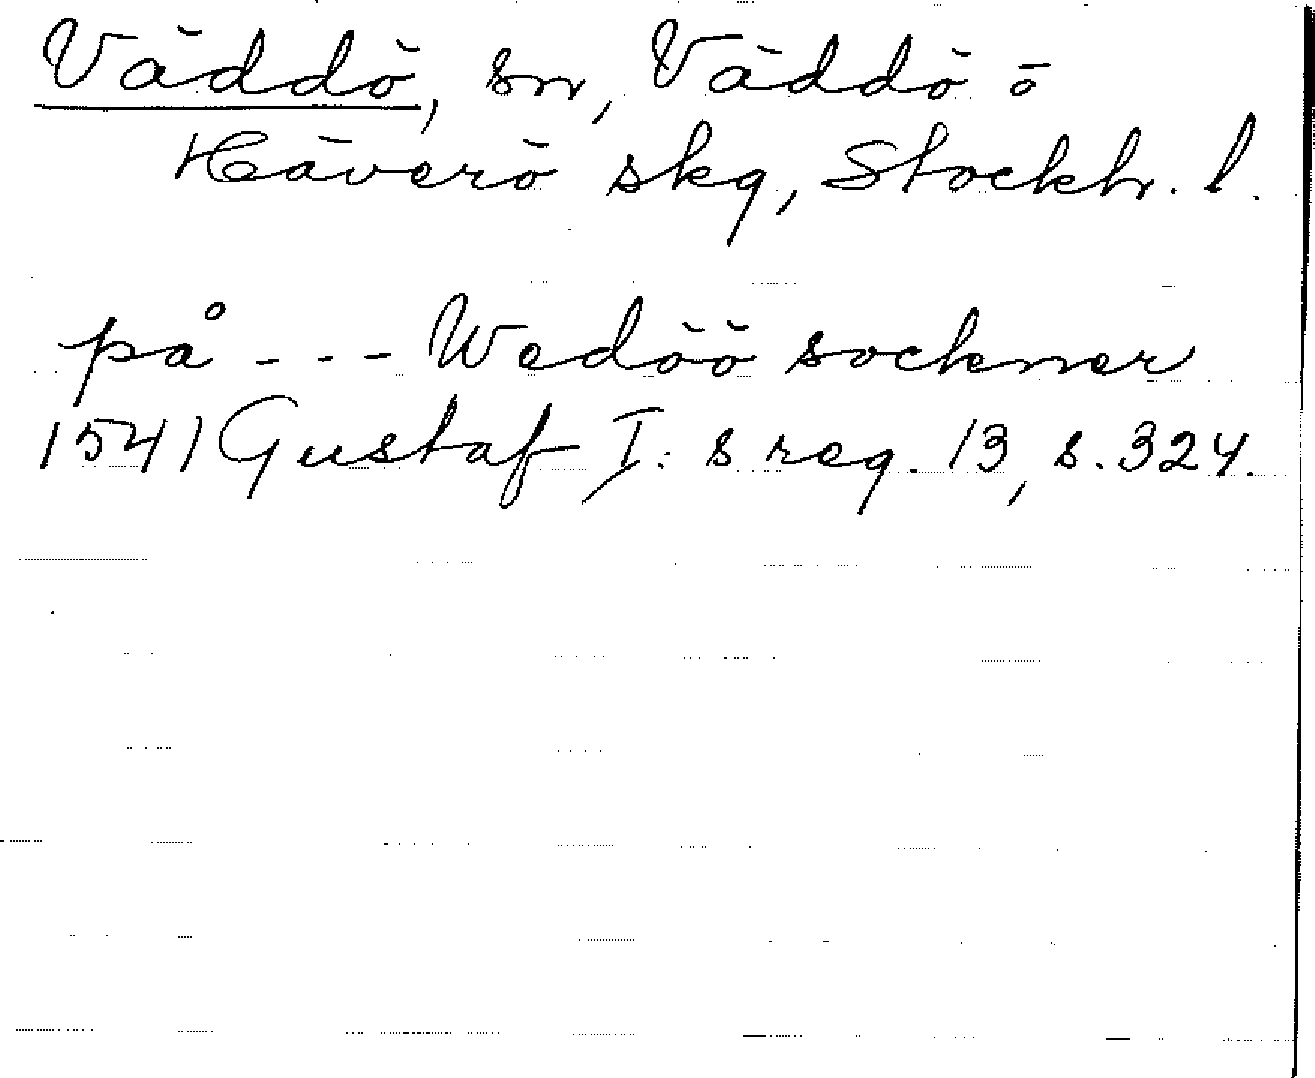 Väddö, sn, Väddö o
Häverö skg, Stockh. l.
på - - - Wedöö sockner
1541 Gustaf I:s reg. 13, s. 324.